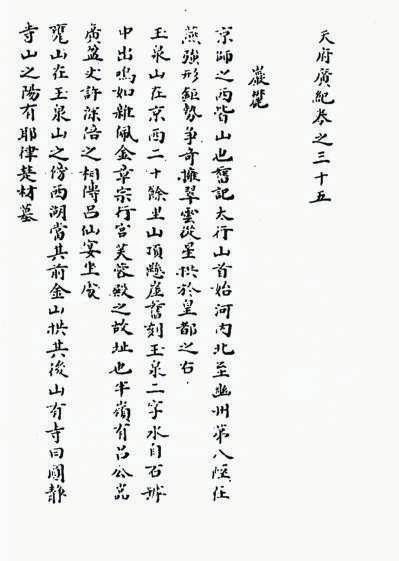 天府廣紀卷之三十五
巖麓
京師之西皆山也舊記太行山首始河内北至幽州第八陘在
燕強形鉅勢爭奇擁翠雲從星拱於皇都之右
玉泉山在京西二十餘里山頂懸崖舊刻玉泉二字水自石罅
中出鳴如雜佩金章宗行宫芙蓉殿之故址也半嶺有吕公巖
廣盈丈許深倍之相傳吕仙宴坐處
甕山在玉泉山之傍西湖當其前金山拱其後山有寺曰圓靜
寺山之陽有耶律楚材墓